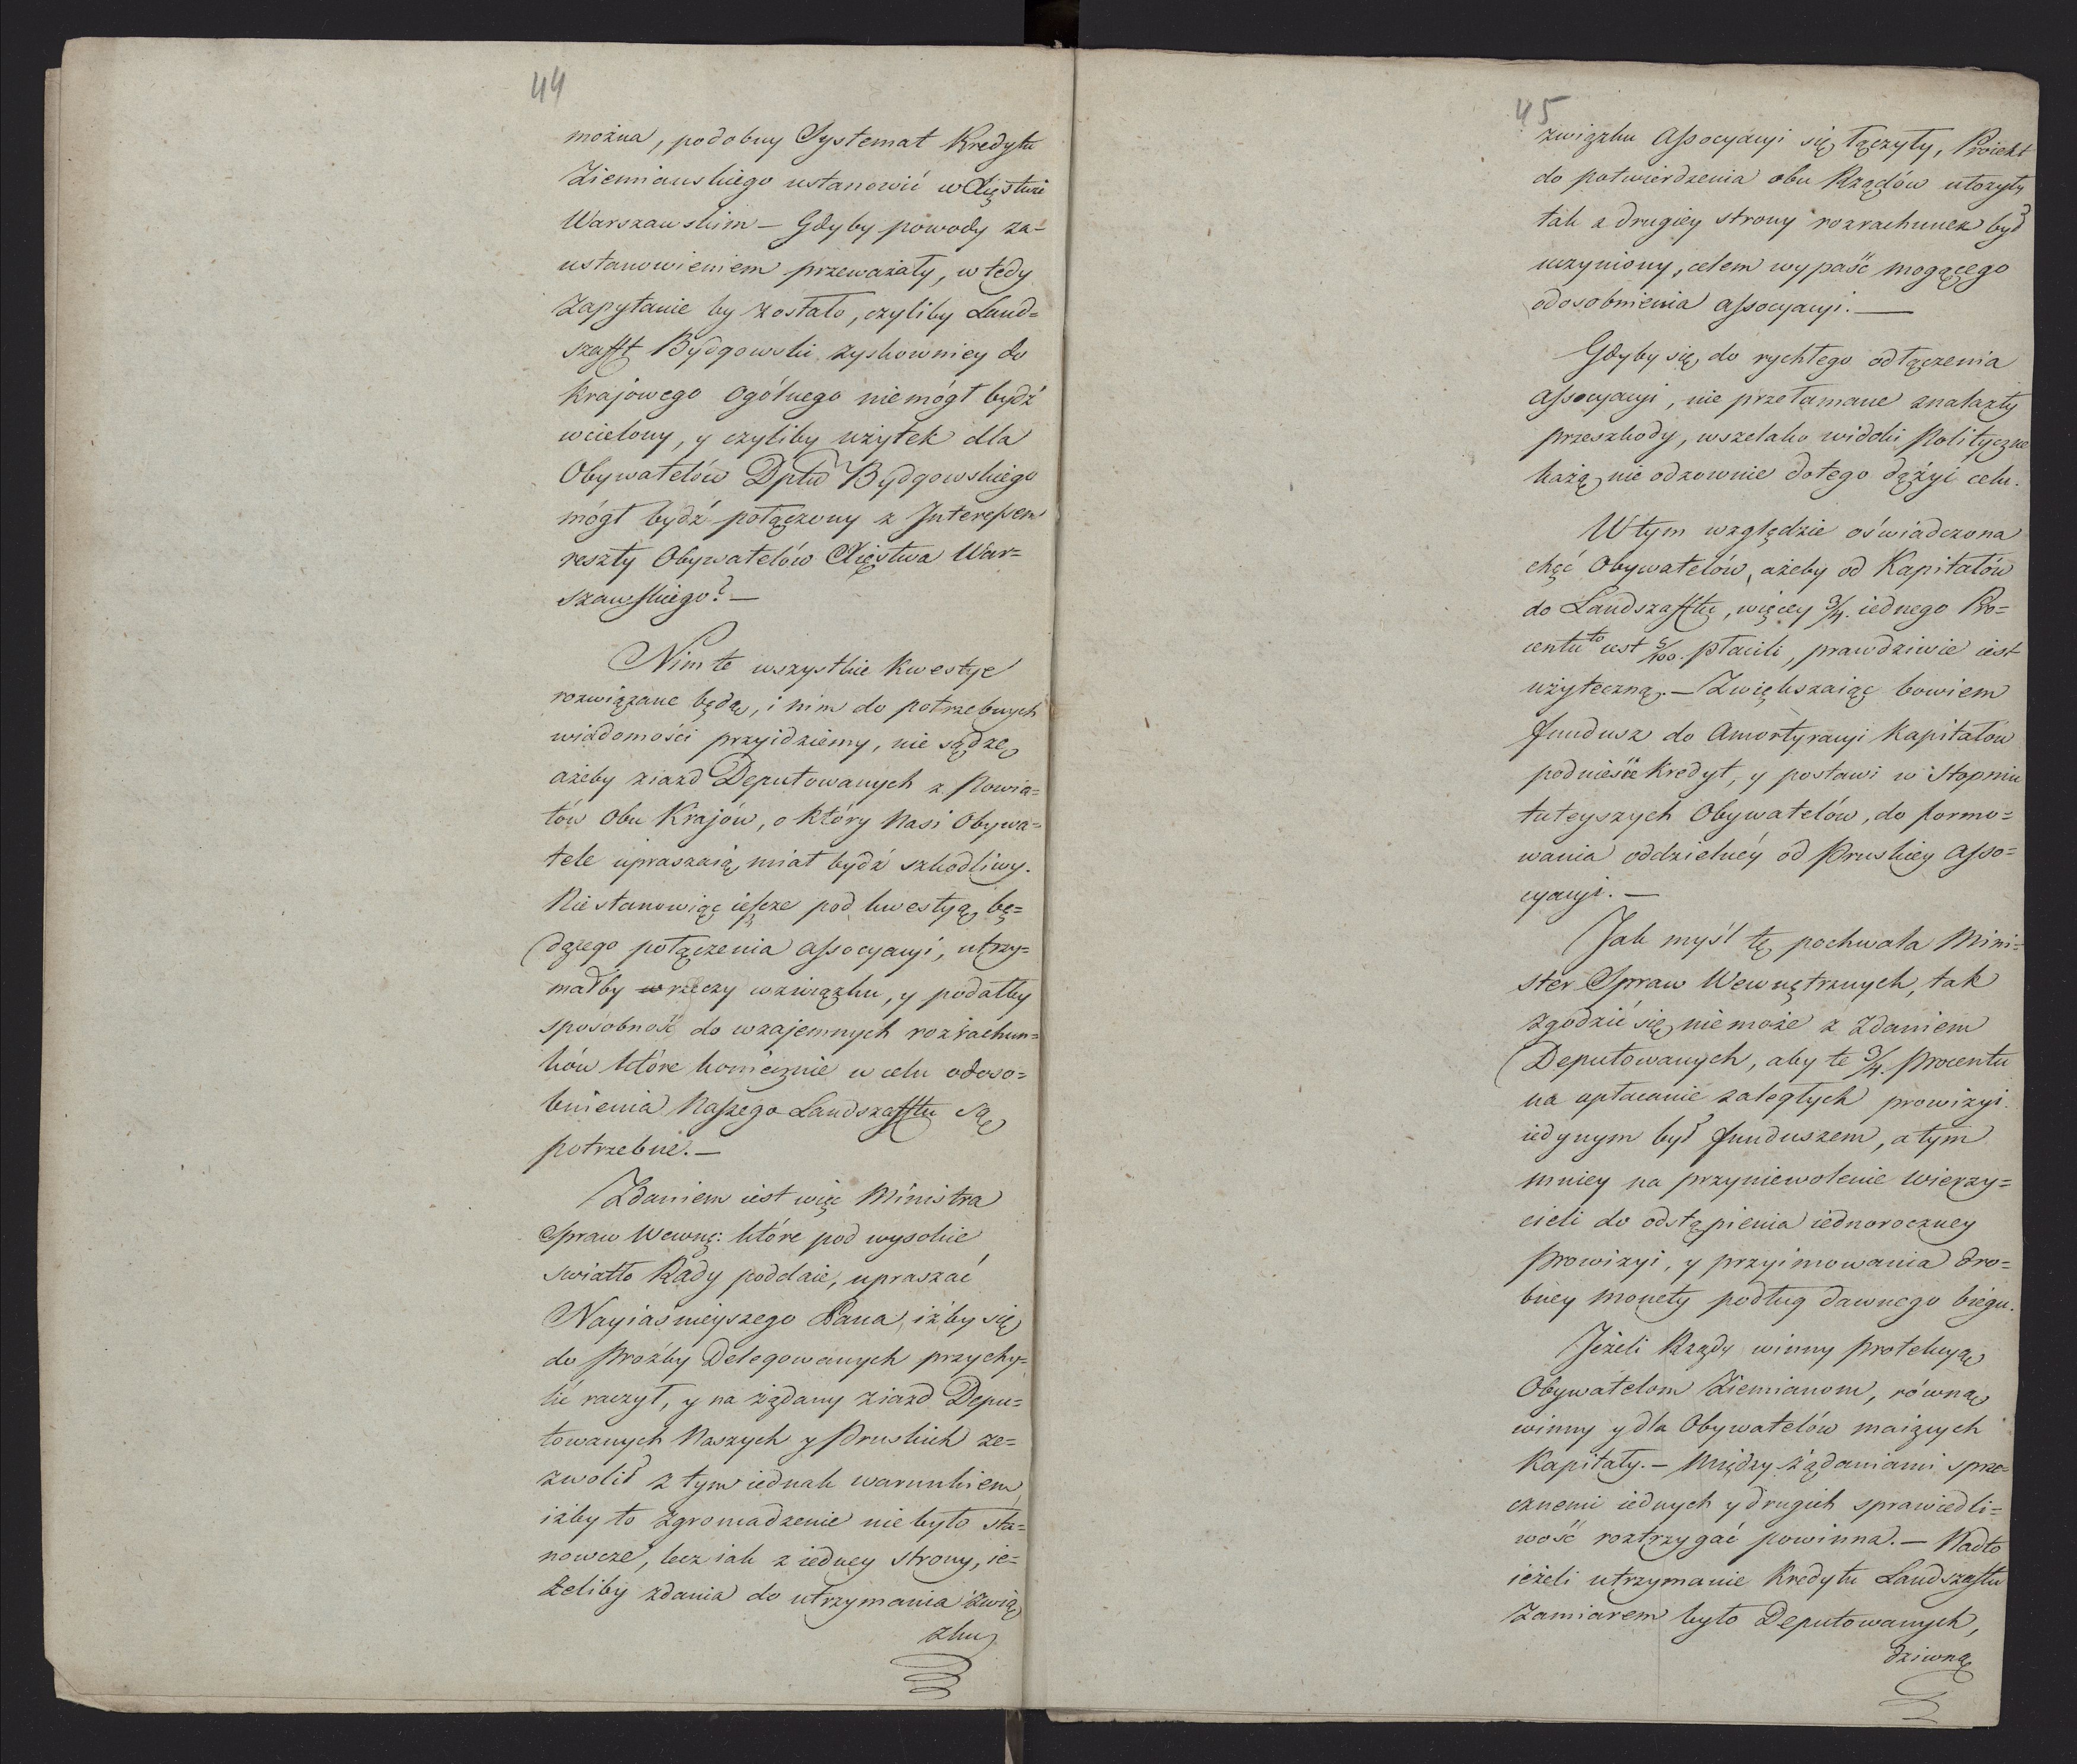 44
można, podobny Systemat Kredytu
Ziemiańskiego ustanowić w Xięstwie
Warszawskim — Gdyby powody za=
ustanowieniem przeważały, wtedy
Zapytanie by zostało, czyliby Land=
szafft Bydgowski, zyskowniey do
Krajowego ogólnego nie mógł bydź
wcielony, y czyliby użytek dla
Obywatelów Dptu Bydgowskiego
mógł bydź połączony z Interessem
reszty Obywatelów Xięstwa War=
szawskiego? —
Nim te wszystkie Kwestye
rozwiązane będą, i nim do potrzebnych
wiadomości przyidziemy, nie sądzę,
ażeby ziazd Deputowanych z Powia=
tów Obu Krajów, o który Nasi Obywa=
tele upraszaią, miał bydź szkodliwy.
Nie stanowiąc ieszcze pod kwestyą bę=
dącego połączenia assocyacyi, utrzy=
małby rzeczy w związku, y podałby
sposobność do wzajemnych rozrachun=
ków które koniecznie w celu odoso=
bnienia Naszego Landszafftu są
potrzebne. —
Zdaniem iest więc Ministra
Spraw Wewnę: które pod wysokie
swiatło Rady poddaie, upraszać
Nayiaśnieyszego Pana, iżby się
do Proźby Delegowanych przychy=
lić raczył, y na żądany ziazd Depu=
towanych Naszych y Pruskich ze=
zwolił z tym iednak warunkiem,
iżby to zgromadzenie nie było sta=
nowcze, lecz iak z iedney strony, ie=
żeliby zdania do utrzymania związ
zku
45
związku Assocyacyi się łączyły, Proiekt
do potwierdzenia obu Rządów ułożyły
tak z drugiey strony rozrachunek był
uczyniony, celem wypaść mogącego
odosobnienia assocyacyi. —
Gdyby się, do rychłego odłączenia
assocyacyi, nie przełamane znalazły
przeszkody, wszelako widoki Polityczne
każą nie odzownie do tego dążyć celu.
W tym względzie oświadczona
chęć Obywatelów, ażeby od Kapitałów
do Landszafftu, więcey 3/4. iednego Pro=
centu to iest 5/100. płacili, prawdziwie iest
użyteczną. — Zwiększaiąc bowiem
fundusz do Amortyzacyi Kapitałów
podniesie Kredyt, y postawi w Stopniu
tuteyszych Obywatelów, do formo=
wania oddzielnéy od Pruskiey Asso=
cyacyi. —
Jak myśl tę pochwala Mini=
ster Spraw Wewnętrznych, tak
zgodzić się nie może z Zdaniem
Deputowanych, aby te 3/4. Procentu
na opłacanie zaległych prowizyi
iedynym był funduszem, a tym
mniey na przyniewolenie Wierzy=
cieli do odstąpienia iednoroczney
Prowizyi, y przyimowania dro=
bney Monety podług dawnego biegu.
Jeżeli Rządy winny protekcyą
Obywatelom Ziemianom, równą
winny y dla Obywatelów maiących
Kapitały. — Między żądaniami sprze=
cznemi iednych y drugich sprawiedli=
wość roztrzygać powinna. — Nadto
ieżeli utrzymanie Kredytu Landszaftu
Zamiarem było Deputowanych,
dziwną